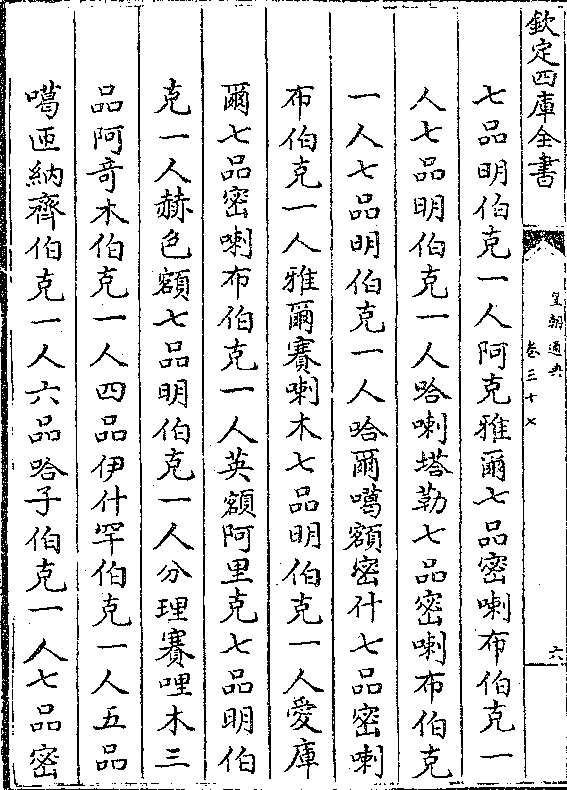 欽定四庫全書
皇朝通典
卷三十七
六
七品明伯克一人阿克雅爾七品密喇布伯克一
人七品明伯克一人哈喇塔勒七品密喇布伯克
一人七品明伯克一人哈爾噶額密什七品密喇
布伯克一人雅爾賽喇木七品明伯克一人愛庫
爾七品密喇布伯克一人英額阿里克七品明伯
克一人赫色額七品明伯克一人分理賽哩木三
品阿奇木伯克一人四品伊什罕伯克一人五品
噶匝納齊伯克一人六品哈子伯克一人七品密